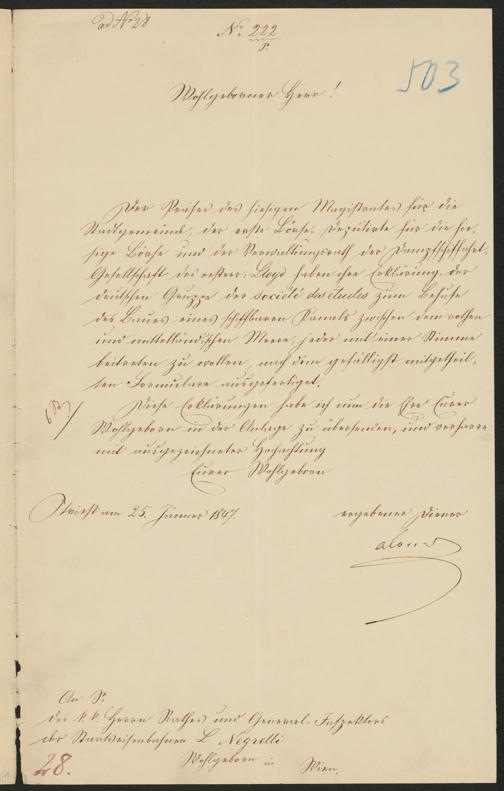 ad No 28
No 222
P.
503
Wohlgeborner Herr!
Der Präses des hiesigen Magistrates für die
Stadtgemeinde, der erste Börse-Deputirte für die hie-
sige Börse und der Verwaltungsrath der Dampfschiffahrt-
Gesellschaft des österr: Lloyd haben ihre Erklärung, der
deutschen Gruppe der société des études zum Behufe
des Baues eines schiffbaren Kanals zwischen dem rothen
und mittelländischen Meere, jeder mit einer Stimme
beitreten zu wollen, nach dem gefälligst mitgetheil-
ten Formulare ausgefertiget.
Diese Erklärungen habe ich nun die Ehre Euer
Wohlgeborn in der Anlage zu übersenden, und verharre
mit ausgezeichneter Hochachtung
Euer Wohlgeborn
Triest am 25. Jänner 1847.
ergebener Diener
An Sr
des k k Herrn Rathes und General-Inspektors
der Staatseisenbahnen L. Negrelli
Wohlgeborn in Wien.
28.